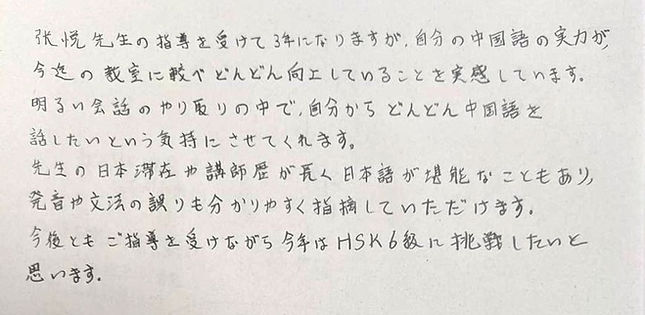 张悦先生の指導を受けて3年になりますが、自分の中国語の実力が、
今迄の教室に較べどんどん向上していることを実感しています。
明るい会話のやり取りの中で、自分からどんどん中国語を
話したいという気持にさせてくれます。
先生の日本滞在や講師歴が長く日本語が堪能なこともあり、
発音や文法の誤りも分かりやすく指摘していただけます。
今後ともご指導を受けながら今年はHSK6級に挑戦したいと
思います。